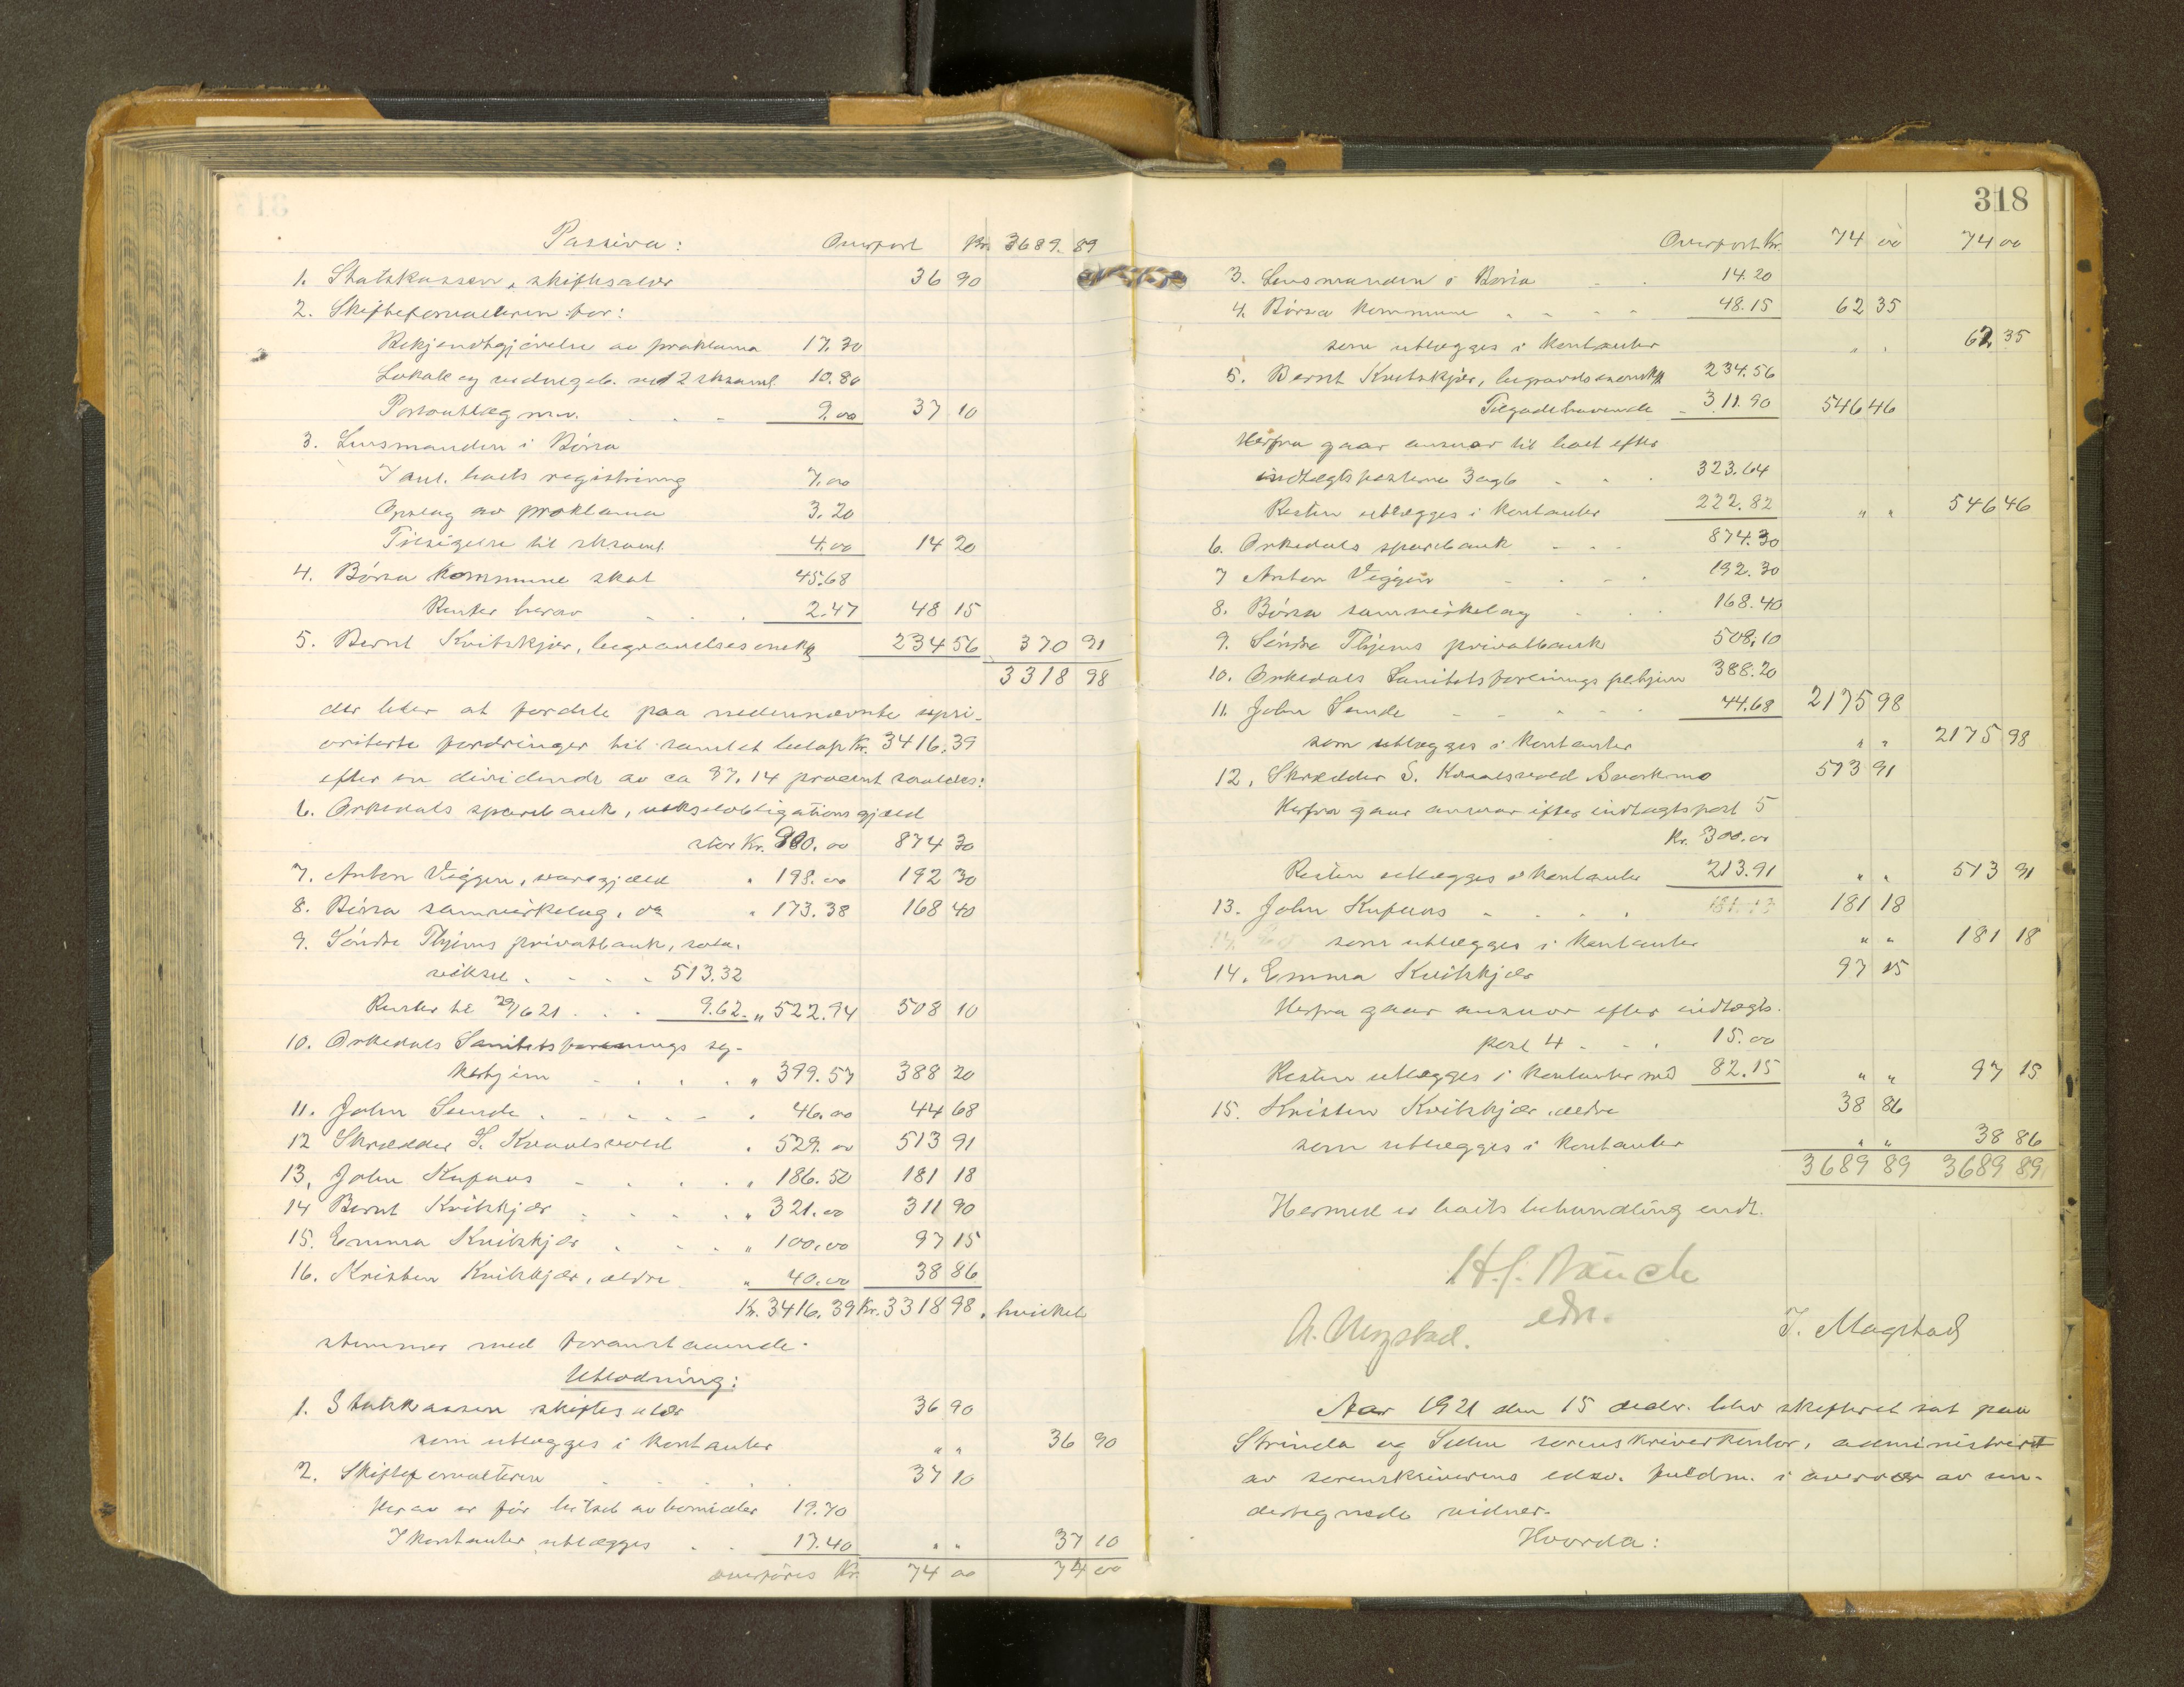 Passiva: Overført Kr. 3689. 89
1. Statskassen, skiftesalær 36 90
2. Skifteforvalteren for:
Bekjendtgjørelse av proklama 17.30
Lokale og vidnegeb. ved 2 sksaml. 10.80
Portoutlæg m.v. 9.00 37 10
3. Lensmanden i Børsa
I anl. boets registrering 7.00
Opslag av proklama 3.20
Tilsigelse til sksaml. 4.00 14 20
4. Børsa kommune skat 45.68
Renter herav 2.47 48 15
5. Bernt Kvitskjær, begravelsesomk. 234 56 370 91
3318 98
der biter at fordele paa nedennævnte upri-
oriterte fordringer til samlet beløp Kr. 3416.39
efter en dividende av ca 97,14 procent saaledes:
6. Orkedals sparebank, vekselobligationsgjæld
stor Kr. 900.00 874 30
7. Anton Viggen, varegjæld " 198.00 192 30
8. Børsa samvirkelag, do " 173.38 168 40
9. Søndre Thjems privatbank, sola-
veksel 513.32
Renter til 29/6 21 9.62 " 522.94 508 10
10. Orkedals Sanitetsforenings sy-
kehjem " 399.57 388 20
11. John Sunde " 46.00 44 68
12 Skrædder S. Kvaalsvold " 529.00 513 91
13, John Kufaas " 186.50 181 18
14 Bernt Kvitskjær " 321.00 311 90
15. Emma Kvitskjær " 100.00 97 15
16. Kristen Kvitskjær, ældre " 40.00 38 86
Kr. 3416.39 Kr. 3318 98, hvilket
stemmer med foranstaaende.
Utlodning:
1. Statskassen skiftesalær 36 90
som utlægges i kontanter " " 36 90
2. Skifteforvalteren 37 10
Herav er før betalt av bomidler 19.70
I kontanter utlægges 17.40 " " 37 10
overføres Kr. 74 00 74 00
318
Overført Kr. 74 00 74 00
3. Lensmanden i Børsa 14.20
4. Børsa kommune 48.15 62 35
som utlægges i kontanter " " 62 35
5. Bernt Kvitskjær, begravelsesomk. 234.56
Tilgodehavende 311.90 546 46
Herfra gaar ansvar til boet efter
indtægtsposterne 3 og 6 323.64
Resten utlægges i kontanter 222.82 " " 546 46
6. Orkedals sparebank 874.30
7 Anton Viggen 192.30
8. Børsa samvirkelag 168.40
9. Søndre Thjems privatbank 508,10
10. Orkedals Sanitetsforenings sykehjem 388.20
11. John Sunde 44.68 2175 98
som utlægges i kontanter " " 2175 98
12. Skrædder S. Kvaalsvold Svorkmo 513 91
Herfra gaar ansvar efter indtægtspost 5
Kr. 300.00
Resten utlægges i kontanter 213.91 " " 513 91
13. John Kufaas 181 18
som utlægges i kontanter " " 181 18
14. Emma Kvitskjær 97 15
Herfra gaar ansvar efter indtægts-
post 4 15.00
Resten utlægges i kontanter med 82.15 " " 97 15
15. Kristen Kvitskjær, ældre 38 86
som utlægges i kontanter " " 38 86
3689 89 3689 89
Hermed er boets behandling endt.
edsv.
J. Magstad
Aar 1921 den 15 decbr. blev skifteret sat paa
Strinda og Selbu sorenskriverkontor, administrert
av sorenskriverens edsv. fuldm. i overvær av un-
dertegnede vidner.
Hvorda: